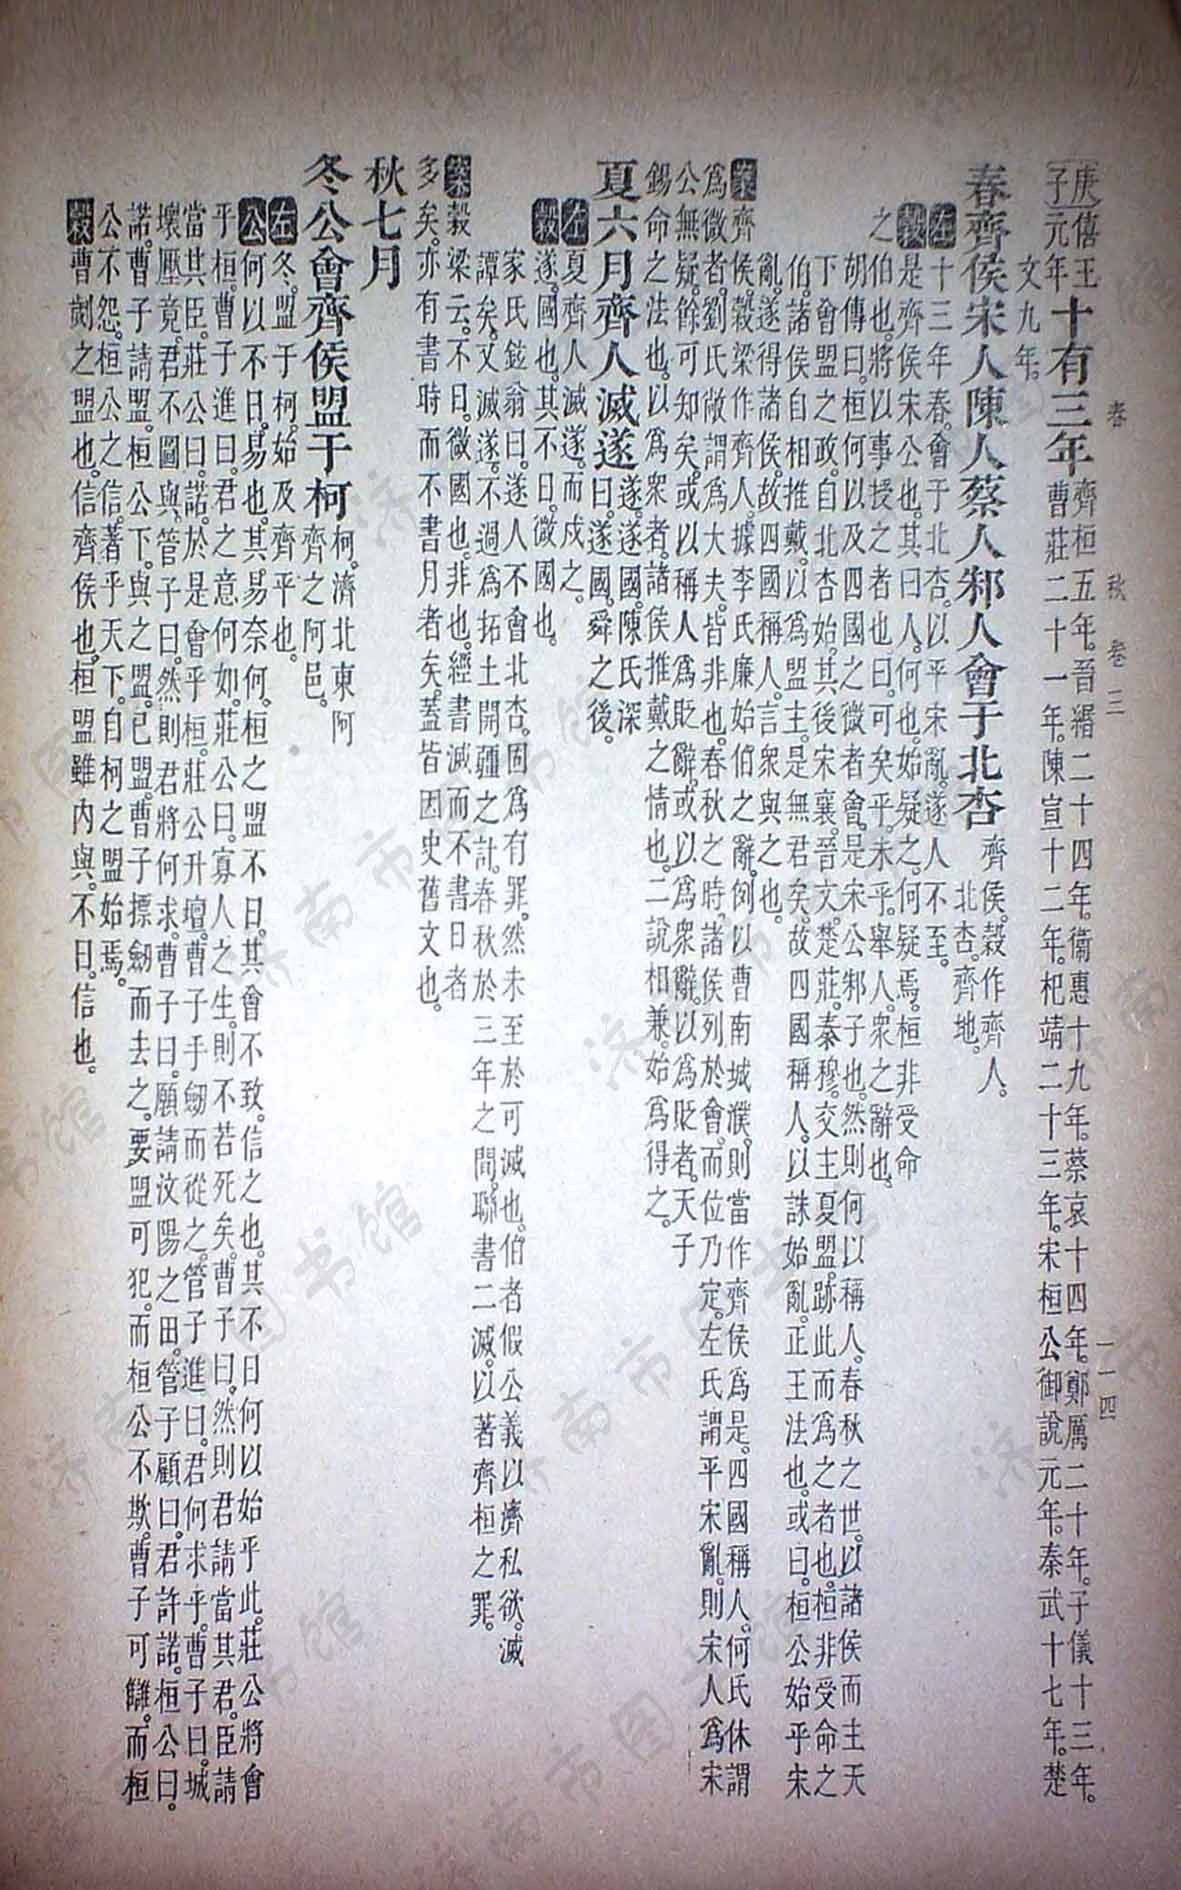 春　秋　卷三　一一四
庚僖王十有三年齊桓五年。晉緡二十四年。衞惠十九年。蔡哀十四年。鄭厲二十年。子儀十三年。
子元年曹莊二十一年。陳宣十二年。杞靖二十三年。宋桓公御說元年。秦武十七年。楚
文九年。
春齊侯宋人陳人蔡人邾人會于北杏齊侯。穀作齊人。
北杏。齊地。
左十三年春。會于北杏。以平宋亂。遂人不至。
穀是齊侯宋公也。其曰人。何也。始疑之。何疑焉。桓非受命
之伯也。將以事授之者也。曰。可矣乎。未乎。舉人。衆之辭也。
胡傳曰。桓何以及四國之微者會。是宋公邾子也。然則何以稱人。春秋之世。以諸侯而主天
下會盟之政。自北杏始。其後宋襄。晉文。楚莊。秦穆。交主夏盟。跡此而爲之者也。桓非受命之
伯。諸侯自相推戴。以爲盟主。是無君矣。故四國稱人。以誅始亂。正王法也。或曰。桓公始平宋
亂。遂得諸侯。故四國稱人。言衆與之也。
案齊侯。穀梁作齊人。據李氏廉始伯之辭。例以曹南城濮。則當作齊侯爲是。四國稱人。何氏休謂
爲微者。劉氏敞謂爲大夫。皆非也。春秋之時。諸侯列於會。而位乃定。左氏謂平宋亂。則宋人爲宋
公無疑。餘可知矣。或以稱人爲貶辭。或以爲衆辭。以爲貶者。天子
錫命之法也。以爲衆者。諸侯推戴之情也。二說相兼。始爲得之。
夏六月齊人滅遂遂。遂國。陳氏深
曰。遂國。舜之後。
左夏。齊人滅遂。而戍之。
穀遂。國也。其不日。微國也。
家氏鉉翁曰。遂人不會北杏。固爲有罪。然未至於可滅也。伯者假公義以濟私欲。滅
譚矣。又滅遂。不過爲拓土開疆之計。春秋於三年之間。聯書二滅。以著齊桓之罪。
案穀梁云。不日。微國也。非也。經書滅而不書日者
多矣。亦有書時而不書月者矣。蓋皆因史舊文也。
秋七月
冬公會齊侯盟于柯柯。濟北東阿
齊之阿邑。
左冬。盟于柯。始及齊平也。
公何以不日。易也。其易奈何。桓之盟不日。其會不致。信之也。其不日何以始乎此。莊公將會
乎桓。曹子進曰。君之意何如。莊公曰。寡人之生。則不若死矣。曹子曰。然則君請當其君。臣請
當其臣。莊公曰。諾。於是會乎桓。莊公升壇。曹子手劒而從之。管子進曰。君何求乎。曹子曰。城
壞壓竟。君不圖與。管子曰。然則君將何求。曹子曰。願請汶陽之田。管子顧曰。君許諾。桓公曰。
諾。曹子請盟。桓公下。與之盟。已盟。曹子摽劒而去之。要盟可犯。而桓公不欺。曹子可讎。而桓
公不怨。桓公之信。著乎天下。自柯之盟始焉。
穀曹劌之盟也。信齊侯也。桓盟雖內與。不日。信也。
济南市图书馆